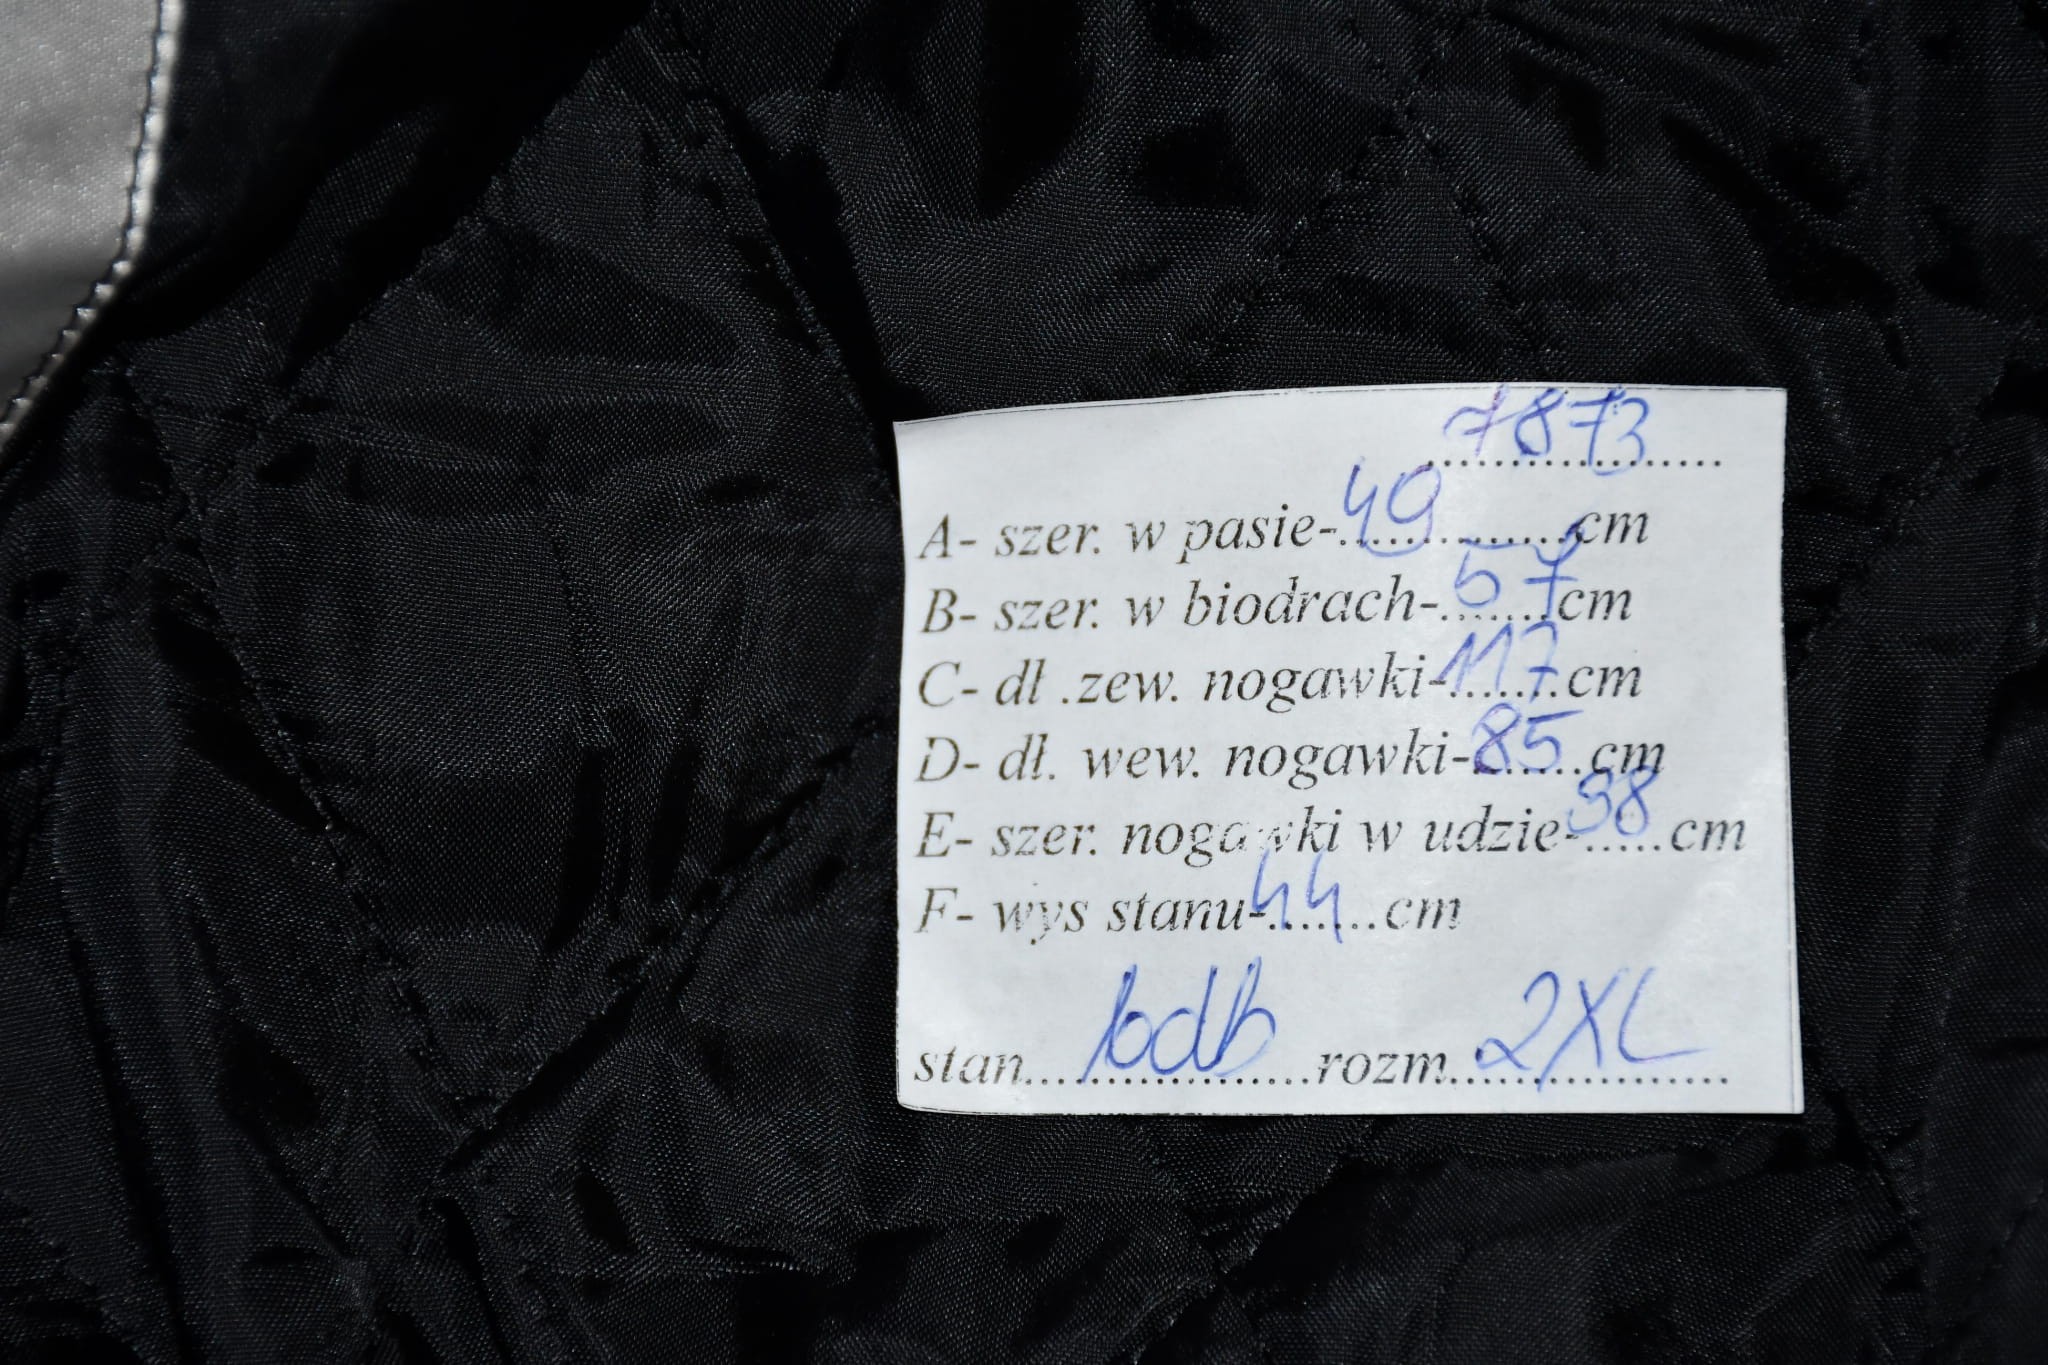 7873
A- szer. w pasie-49..............cm
B- szer. w biodrach-.57......cm
C- dł .zew. nogawki-117.......cm
D- dł. wew. nogawki-85......cm
E- szer. nogawki w udzie-38.....cm
F- wys stanu-44.......cm
stan...bdb...............rozm...2XL...............